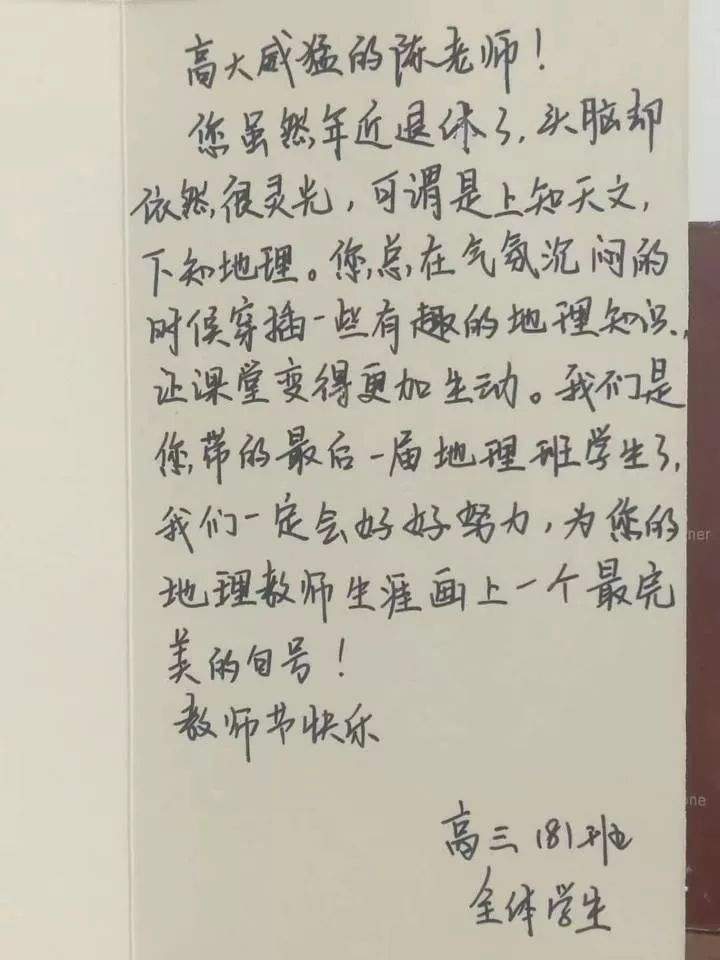 高大威猛的陈老师！
您虽然年近退休了，头脑却
依然很灵光，可谓是上知天文，
下知地理。您总在气氛沉闷的
时候穿插一些有趣的地理知识，
让课堂变得更加生动。我们是
您带的最后一届地理班学生了，
我们一定会好好努力，为您的
地理教师生涯画上一个最完
美的句号！
教师节快乐
高三（8）班
全体学生
ner
one